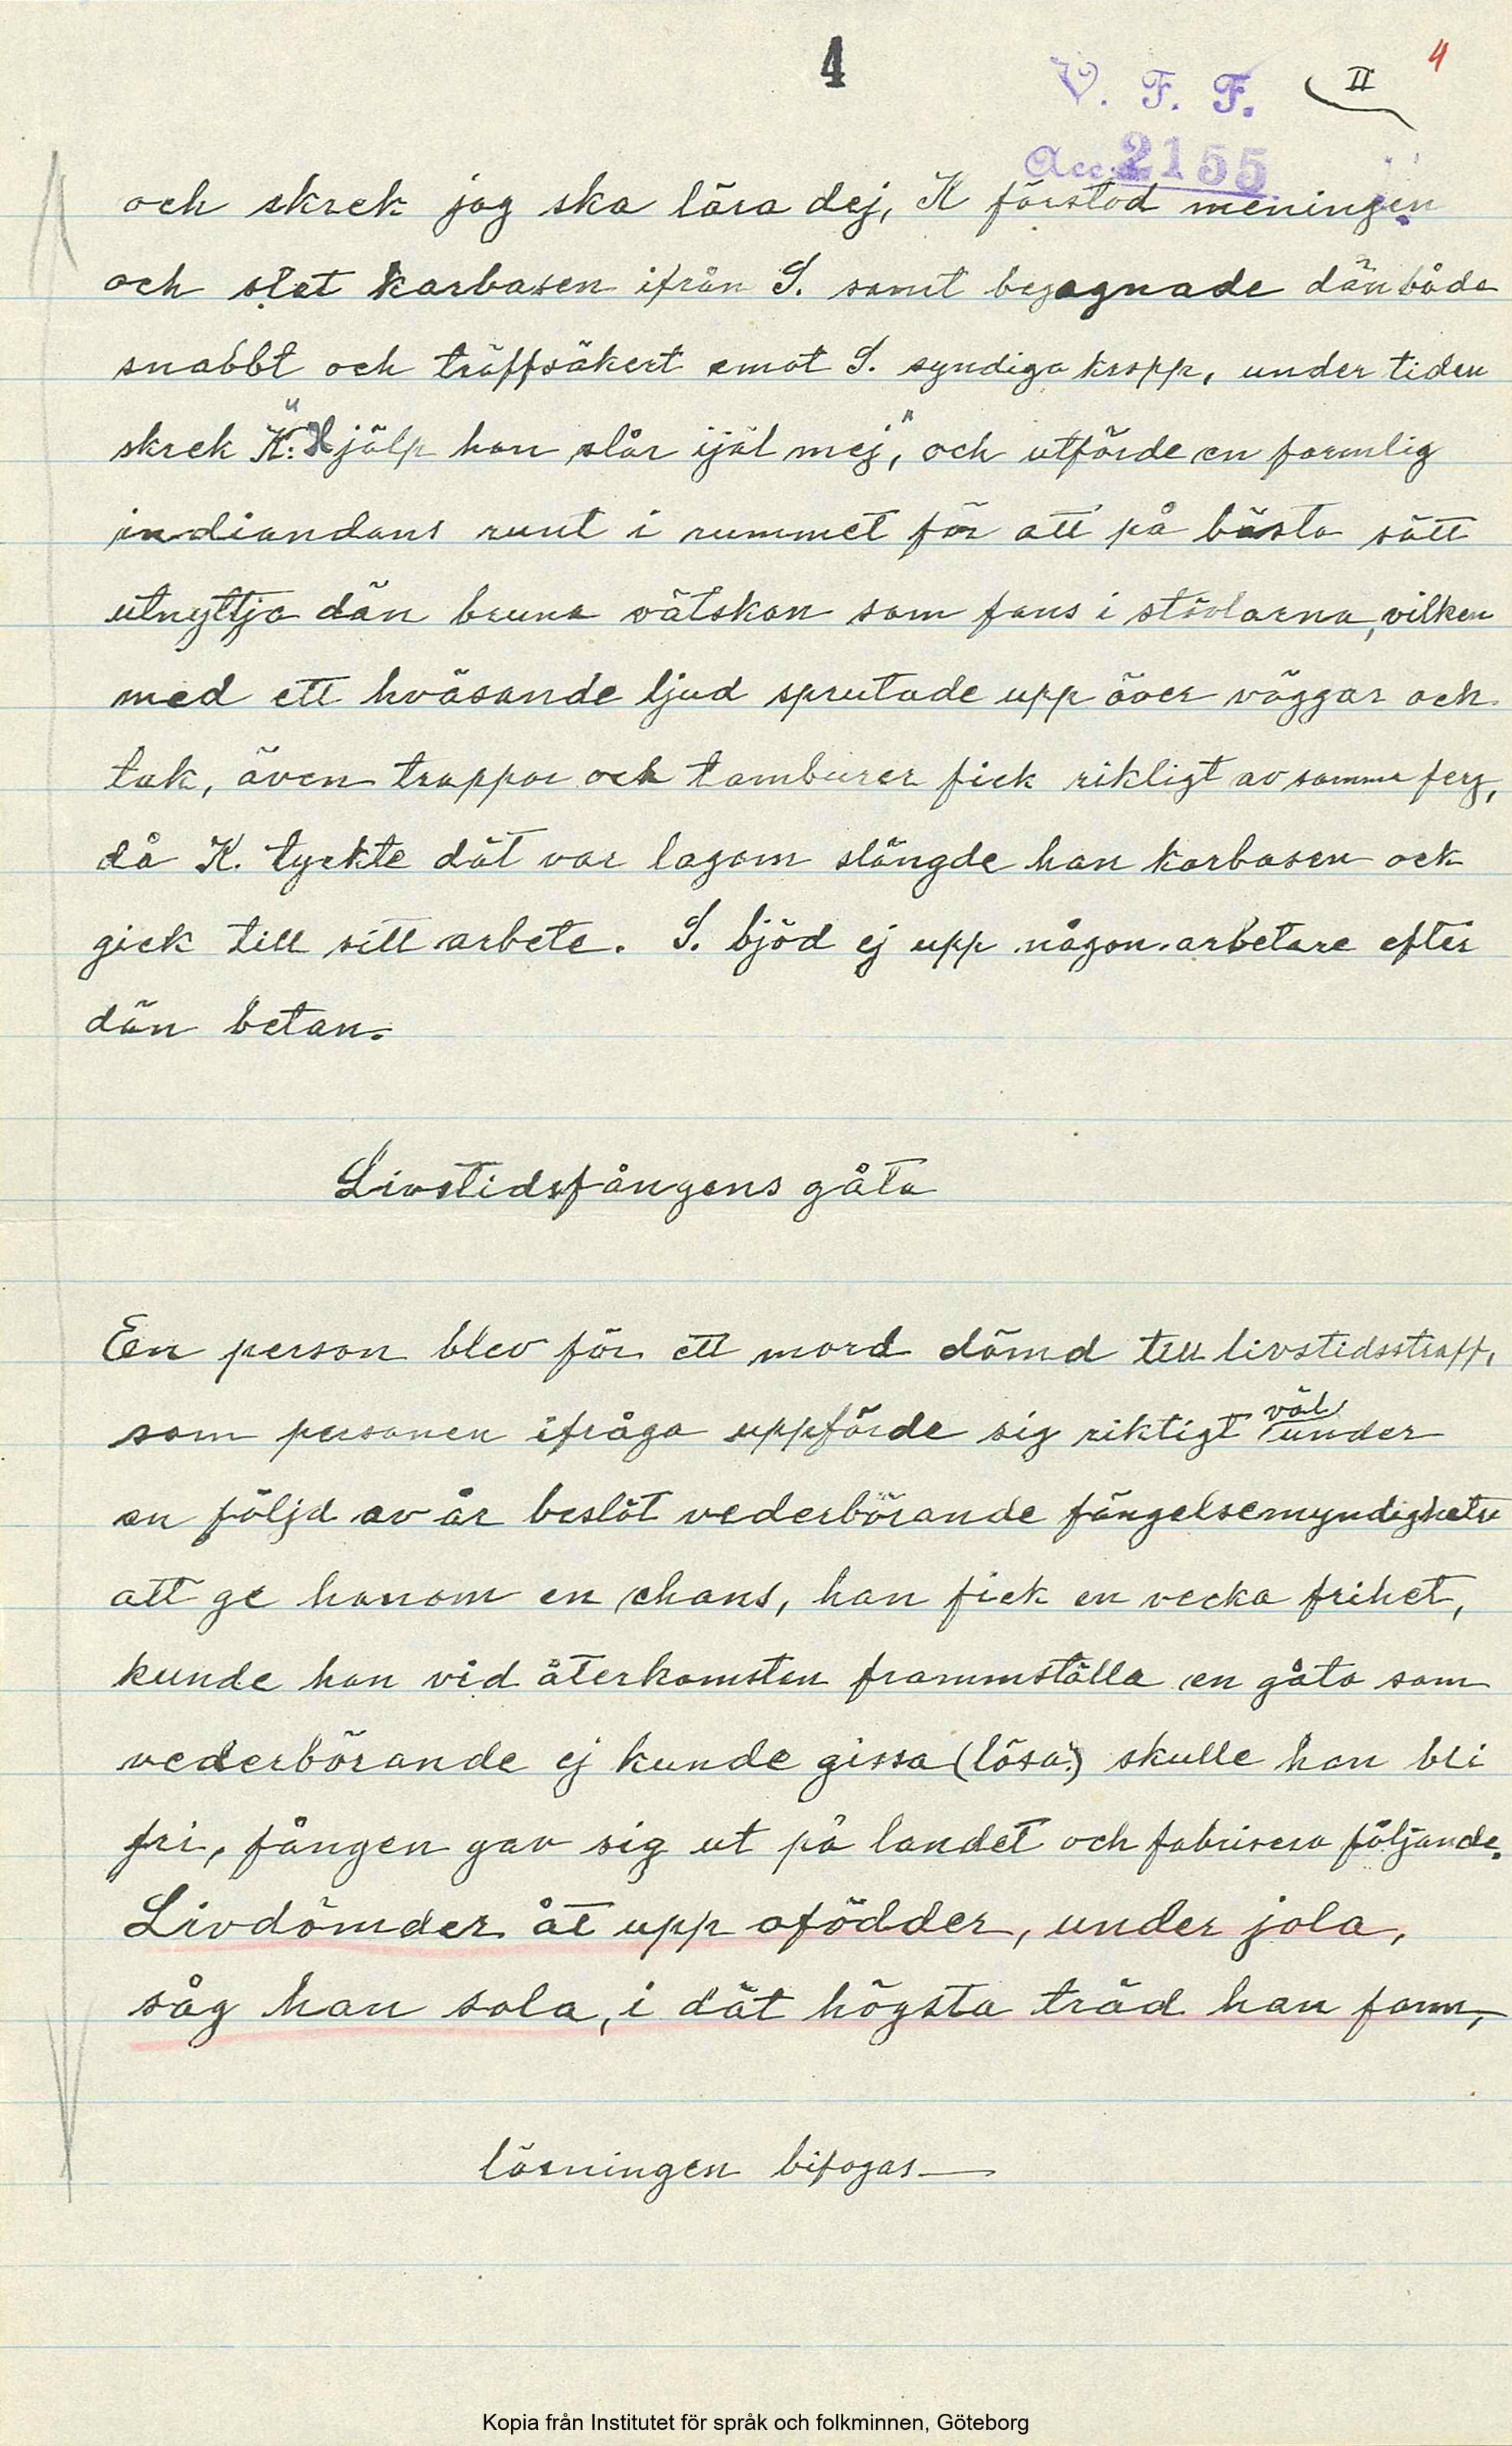 4
4
II
V. F. F.
Acc. 2155
och skrek jag ska lära dej, K förstod meningen
och slet karbasen ifrån S. samt begagnade dän både
snabbt och träffsäkert emot S. syndiga kropp, under tiden
skrek K: "Hjälp han slår ijäl mej", och utförde en formlig
indiandans runt i rummet för att på bästa sätt
utnyttja dän bruna vätskan som fans i stövlarna, vilken
med ett hväsande ljud sprutade upp över väggar och
tak, även trappor och tamburer fick rikligt av samma ferg,
då K. tyckte dät var lagom slängde han karbasen ock
gick till sitt arbete. S. bjöd ej upp någon arbetare efter
dän betan.
Livstidsfångens gåta
En person blev för ett mord dömd till livstidsstraff,
som personen ifråga uppförde sig riktigt väl under
en följd av år beslöt vederbörande fängelsemyndigheter
att ge honom en chans, han fick en vecka frihet,
kunde han vid återkomsten frammställa en gåta som
vederbörande ej kunde gissa (lösa) skulle han bli
fri, fången gav sig ut på landet och fabrisera följande.
Livdömder åt upp ofödder, under jola,
såg han sola, i dät högsta träd han fann,
lösningen bifogas
Kopia från Institutet för språk och folkminnen, Göteborg